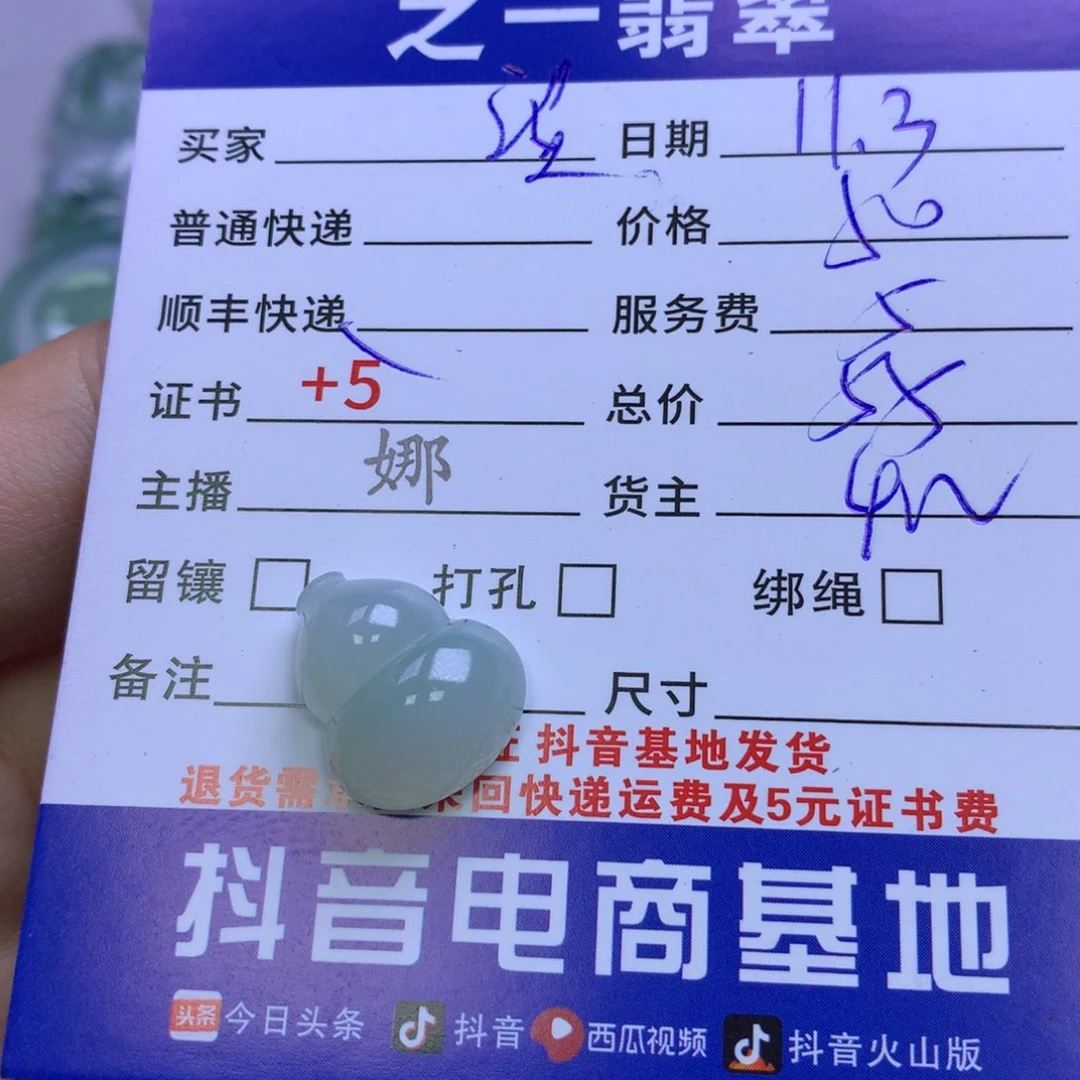 之一翡翠
买家 日期 11.3
普通快递 价格 50
顺丰快递 服务费 5
证书 +5 总价 55
主播 娜 货主
留镶 打孔 绑绳
备注 尺寸
抖音基地发货
退货需 回快递运费及5元证书费
抖音电商基地
头条 今日头条 抖音 西瓜视频 抖音火山版